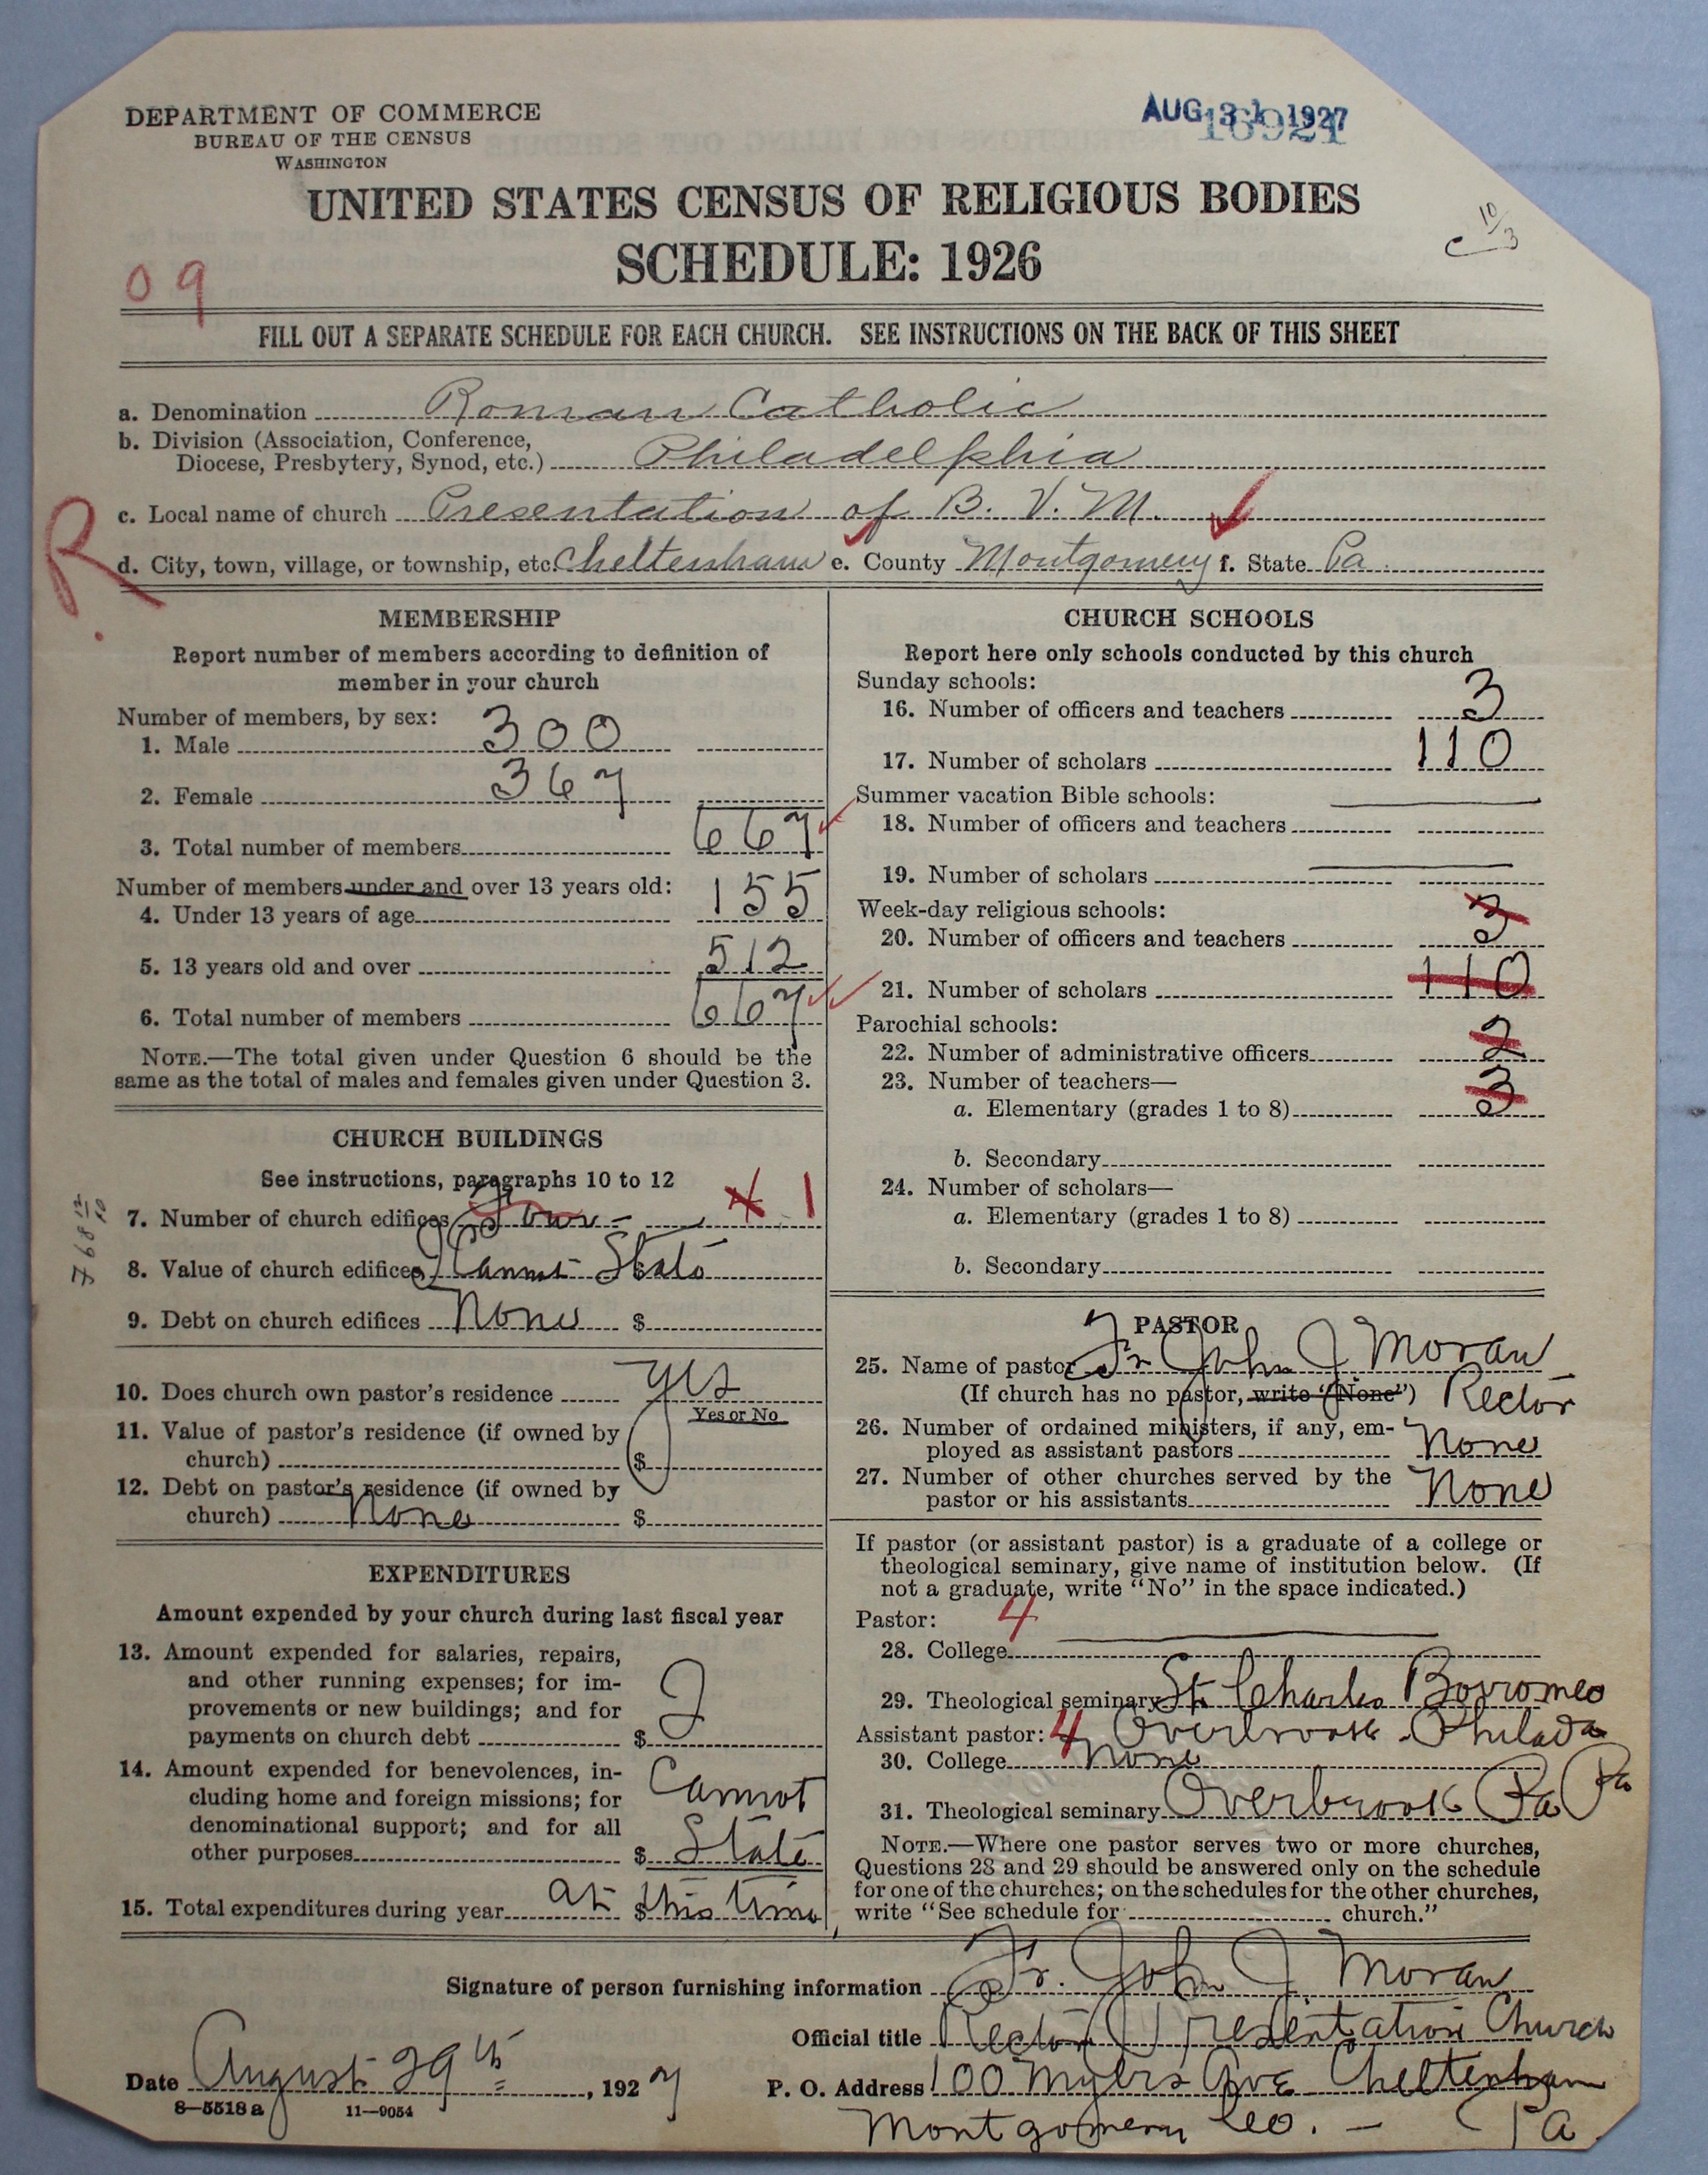 DEPARTMENT OF COMMERCE
BUREAU OF THE CENSUS
WASHINGTON
AUG 31 1927
16921
UNITED STATES CENSUS OF RELIGIOUS BODIES
SCHEDULE: 1926
C 10/3
09
FILL OUT A SEPARATE SCHEDULE FOR EACH CHURCH. SEE INSTRUCTIONS ON THE BACK OF THIS SHEET
a. Denomination Roman Catholic
b. Division (Association, Conference,
Diocese, Presbytery, Synod, etc.) Philadelphia
c. Local name of church Presentation of B. V. M.
R
d. City, town, village, or township, etc. Cheltenham e. County Montgomery f. State Pa
MEMBERSHIP
Report number of members according to definition of
member in your church
Number of members, by sex:
1. Male 300
2. Female 367
3. Total number of members 667
Number of members under and over 13 years old:
4. Under 13 years of age 155
5. 13 years old and over 512
6. Total number of members 667
NOTE.—The total given under Question 6 should be the
same as the total of males and females given under Question 3.
CHURCH BUILDINGS
See instructions, paragraphs 10 to 12
7. Number of church edifices 1
8. Value of church edifices I Cannot State $
9. Debt on church edifices None $
10. Does church own pastor's residence yes
Yes or No
11. Value of pastor's residence (if owned by
church) $
12. Debt on pastor's residence (if owned by
church) None $
EXPENDITURES
Amount expended by your church during last fiscal year
13. Amount expended for salaries, repairs,
and other running expenses; for im-
provements or new buildings; and for
payments on church debt $ I
14. Amount expended for benevolences, in-
cluding home and foreign missions; for
denominational support; and for all
other purposes $ Cannot State
15. Total expenditures during year at $ this time
CHURCH SCHOOLS
Report here only schools conducted by this church
Sunday schools:
16. Number of officers and teachers 3
17. Number of scholars 110
Summer vacation Bible schools:
18. Number of officers and teachers
19. Number of scholars
Week-day religious schools:
20. Number of officers and teachers 3
21. Number of scholars 110
Parochial schools:
22. Number of administrative officers 2
23. Number of teachers—
a. Elementary (grades 1 to 8) 3
b. Secondary
24. Number of scholars—
a. Elementary (grades 1 to 8)
b. Secondary
PASTOR
25. Name of pastor Fr. John J Moran
(If church has no pastor, write "None") Rector
26. Number of ordained ministers, if any, em-
ployed as assistant pastors None
27. Number of other churches served by the
pastor or his assistants None
If pastor (or assistant pastor) is a graduate of a college or
theological seminary, give name of institution below. (If
not a graduate, write "No" in the space indicated.)
Pastor: 4
28. College
29. Theological seminary St. Charles Borromeo
Assistant pastor: 4 Overbrook - Philada Pa
30. College none
31. Theological seminary Overbrook Pa
NOTE.—Where one pastor serves two or more churches,
Questions 28 and 29 should be answered only on the schedule
for one of the churches; on the schedules for the other churches,
write "See schedule for church."
Signature of person furnishing information Fr. John J. Moran
Official title Rector Presentation Church
Date August 29th, 1927
P. O. Address 100 Myers Ave Cheltenham
Montgomery Co. - Pa
8—5518a 11—9054